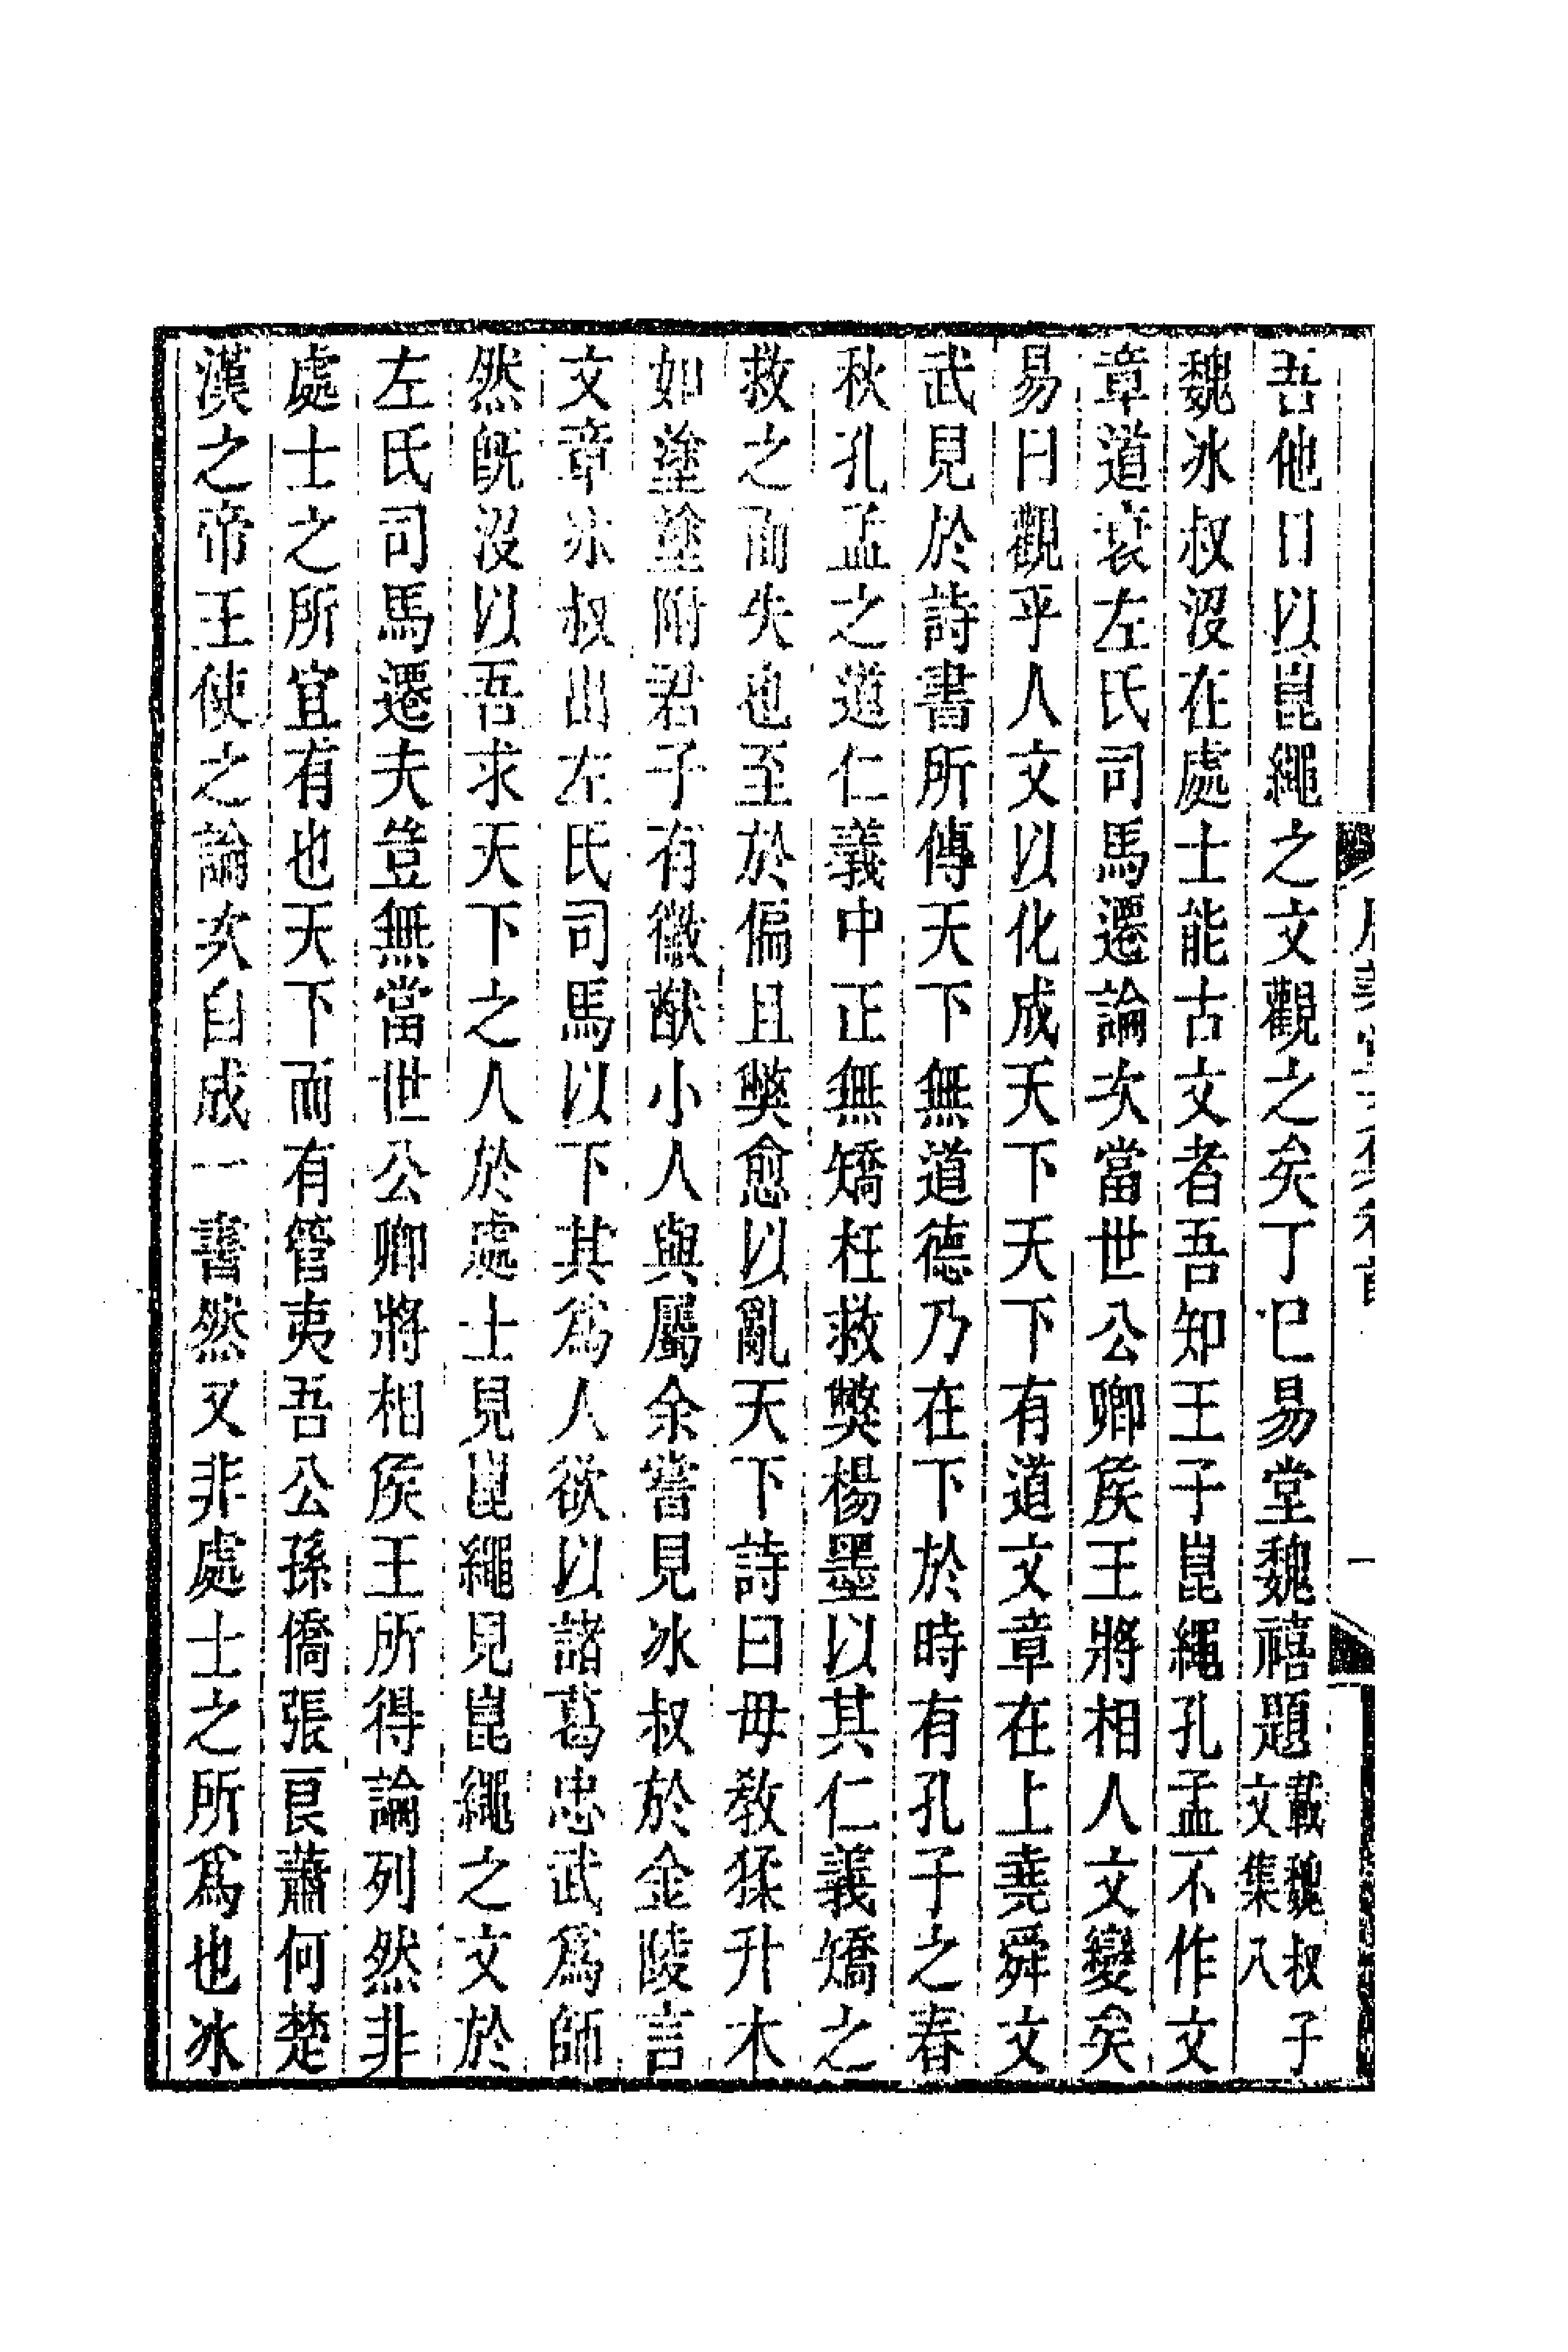 吾他日以崑繩之文觀之矣丁巳易堂魏禧題載魏叔子文集八
魏冰叔沒在處士能古文者吾知王子崑繩孔孟不作文
章道衰左氏司馬遷論次當世公卿矦王將相人文變矣
易曰觀乎人文以化成天下天下有道文章在上堯舜文
武見於詩書所傳天下無道德乃在下於時有孔子之春
秋孔孟之道仁義中正無矯枉救獘楊墨以其仁義矯之
救之而失也至於偏且獘愈以亂天下詩曰毋敎猱升木
如塗塗附君子有徽猷小人與屬余嘗見冰叔於金陵言
文章冰叔出左氏司馬以下其爲人欲以諸葛忠武爲師
然旣沒以吾求天下之人於處士見崑繩見崑繩之文於
左氏司馬遷夫豈無當世公卿將相矦王所得論列然非
處士之所宜有也天下而有管夷吾公孫僑張良蕭何楚
漢之帝王使之論次自成一書然又非處士之所爲也冰